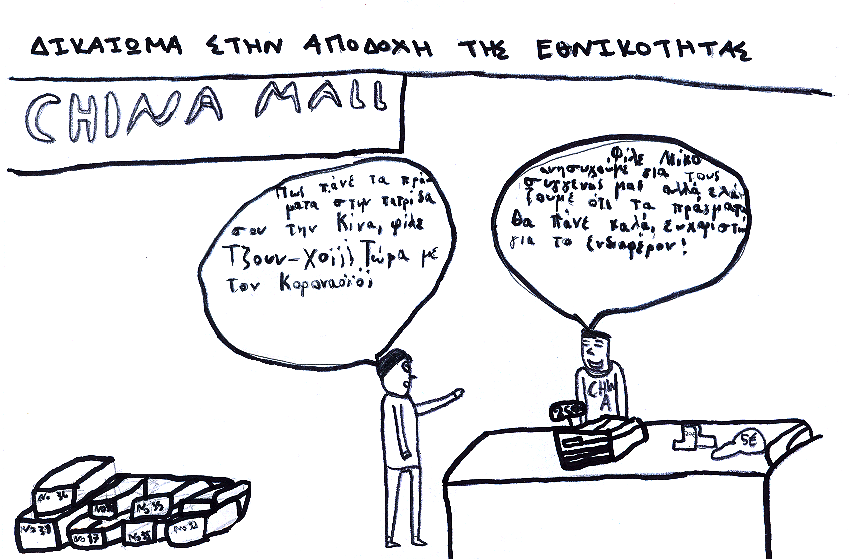 ΔΙΚΑΙΩΜΑ ΣΤΗΝ ΑΠΟΔΟΧΗ ΤΗΣ ΕΘΝΙΚΟΤΗΤΑΣ
CHINA MALL
Πως πάνε τα πράγ
ματα στην πατρίδα
σου την Κίνα, φίλε
Τζουν-Χοϊ; Τώρα με
τον Κοροναϊό;
Φίλε Νίκο
ανησυχουμε για τους
συγγενείς μας αλλά ελπί
ζουμε ότι τα πράγματα
θα πάνε καλά, ευχαριστώ
για το ενδιαφέρον!
CHIN
A
25€
5€
No 36
No 35
No 38
No 37
No 35